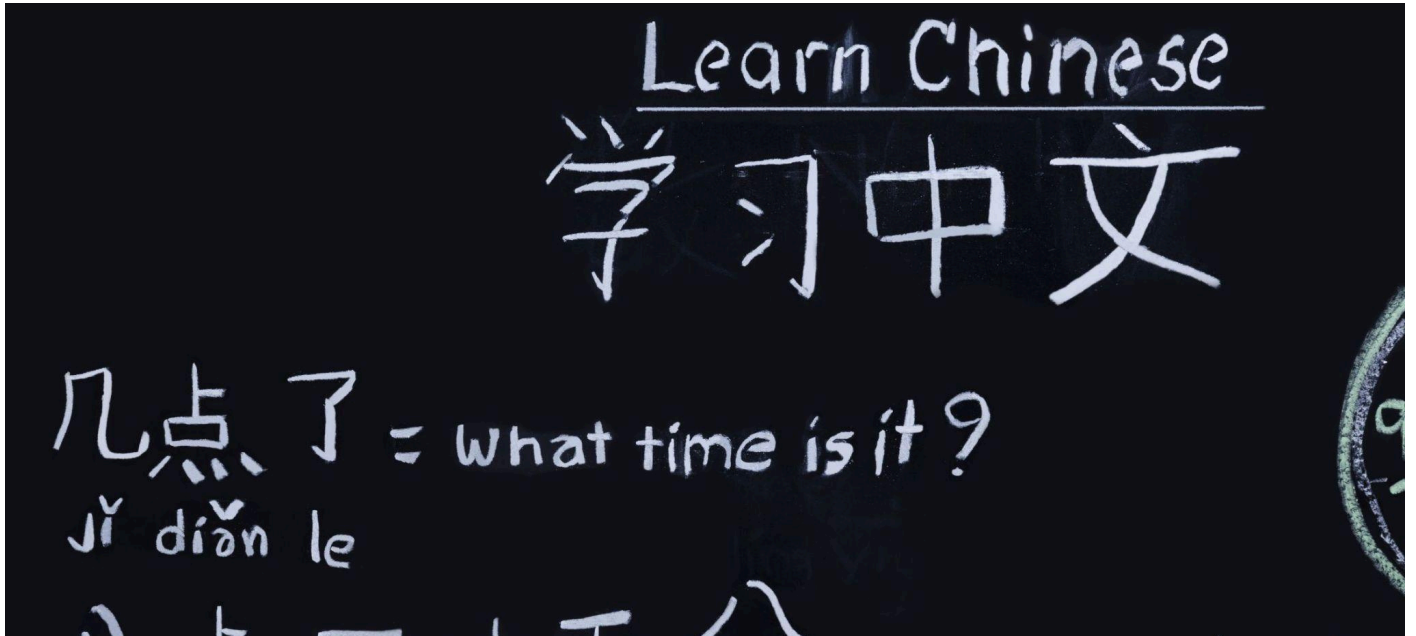 Learn Chinese
学习中文
几点了 = what time is it?
jǐ diǎn le
9